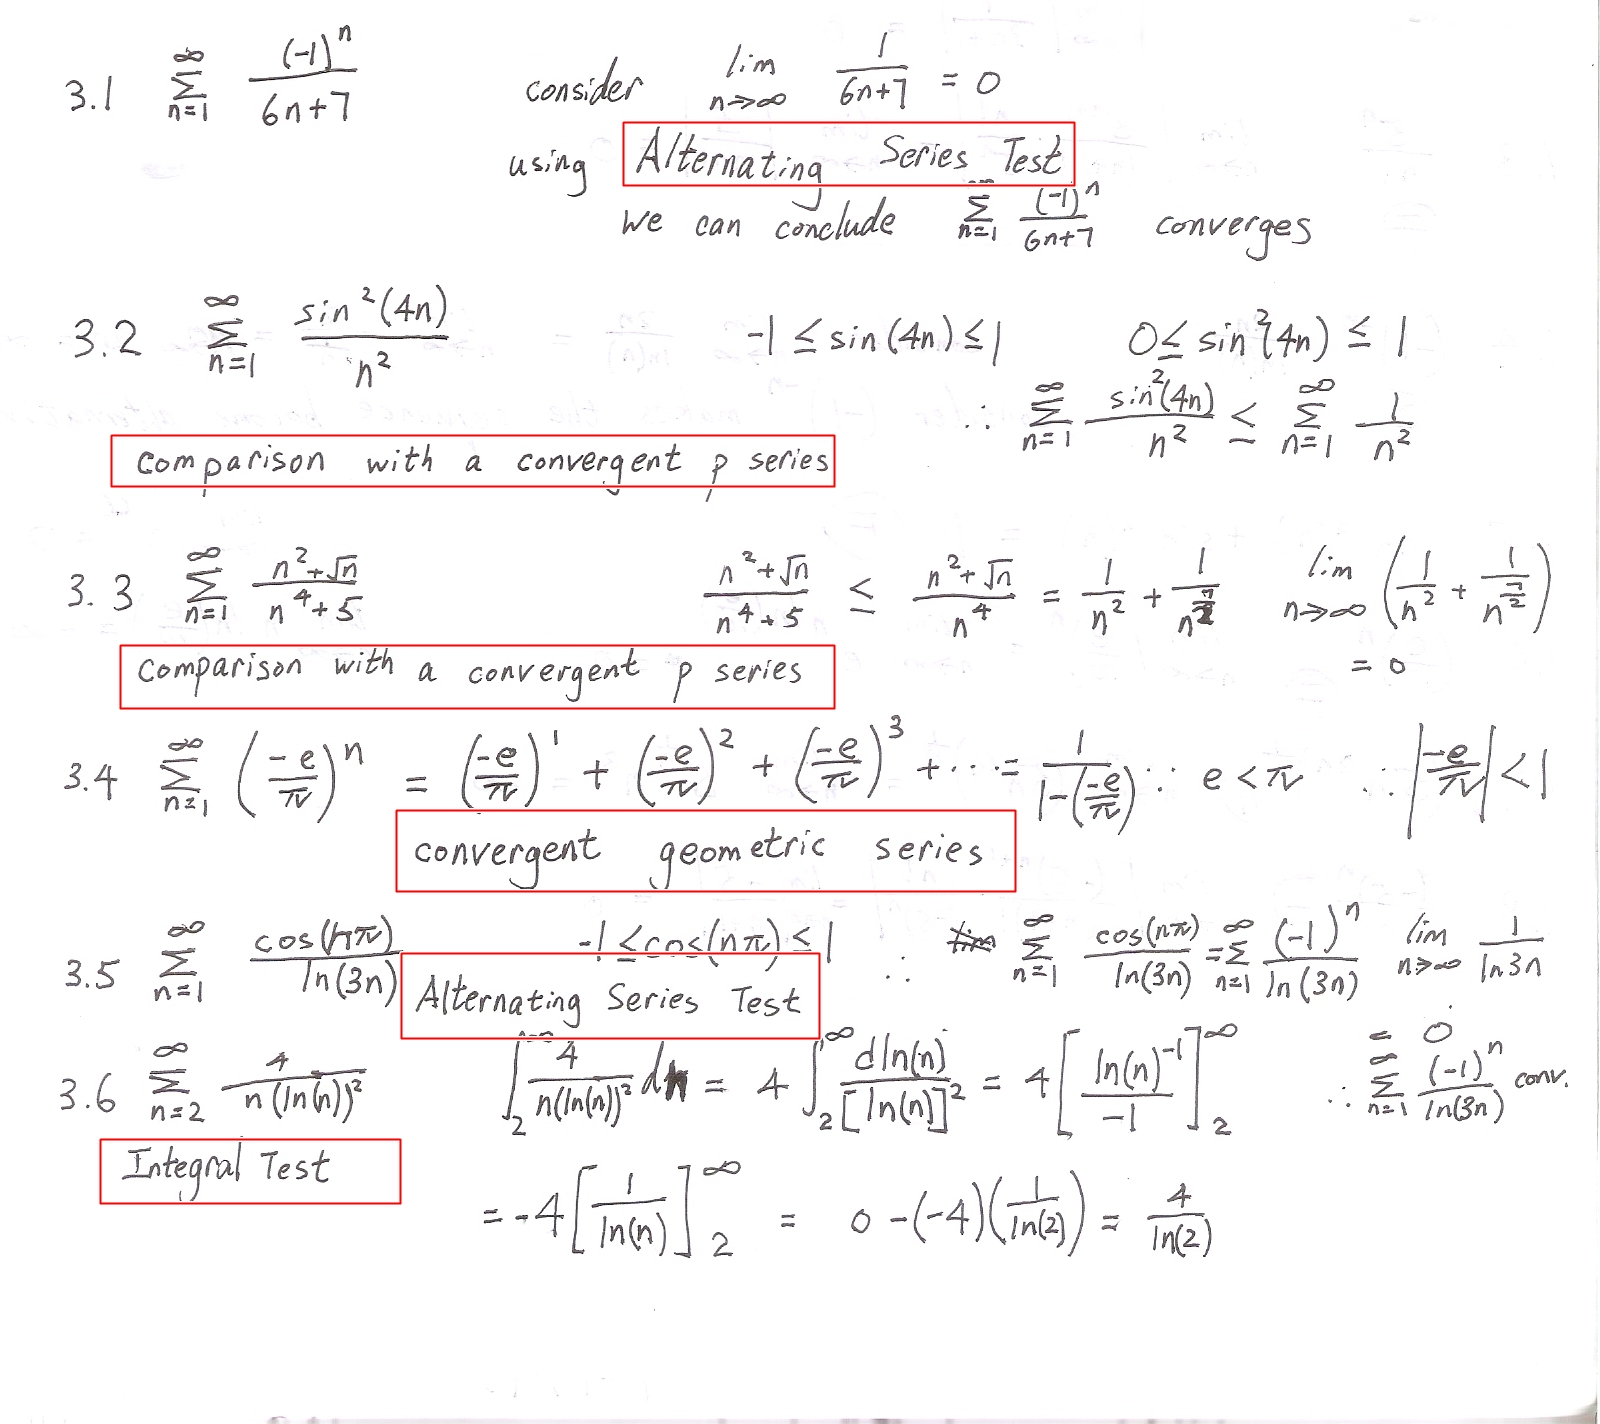 3.1 $\sum_{n=1}^{\infty} \frac{(-1)^n}{6n+7}$ consider $\lim_{n \to \infty} \frac{1}{6n+7} = 0$
using Alternating Series Test
we can conclude $\sum_{n=1}^{\infty} \frac{(-1)^n}{6n+7}$ converges
3.2 $\sum_{n=1}^{\infty} \frac{\sin^2(4n)}{n^2}$ $-1 \leq \sin(4n) \leq 1$ $0 \leq \sin^2(4n) \leq 1$
$\therefore \sum_{n=1}^{\infty} \frac{\sin^2(4n)}{n^2} \leq \sum_{n=1}^{\infty} \frac{1}{n^2}$
comparison with a convergent p series
3.3 $\sum_{n=1}^{\infty} \frac{n^2+\sqrt{n}}{n^4+5}$ $\frac{n^2+\sqrt{n}}{n^4+5} \leq \frac{n^2+\sqrt{n}}{n^4} = \frac{1}{n^2} + \frac{1}{n^{\frac{7}{2}}}$ $\lim_{n \to \infty} \left(\frac{1}{n^2} + \frac{1}{n^{\frac{7}{2}}}\right)$
$= 0$
comparison with a convergent p series
3.4 $\sum_{n=1}^{\infty} \left(\frac{-e}{\pi}\right)^n = \left(\frac{-e}{\pi}\right)^1 + \left(\frac{-e}{\pi}\right)^2 + \left(\frac{-e}{\pi}\right)^3 + \cdots = \frac{1}{1-\left(\frac{-e}{\pi}\right)}$ $\because e < \pi$ $\therefore \left|\frac{-e}{\pi}\right| < 1$
convergent geometric series
3.5 $\sum_{n=1}^{\infty} \frac{\cos(n\pi)}{\ln(3n)}$ $-1 \leq \cos(n\pi) \leq 1$ $\therefore$ $\sum_{n=1}^{\infty} \frac{\cos(n\pi)}{\ln(3n)} = \sum_{n=1}^{\infty} \frac{(-1)^n}{\ln(3n)}$ $\lim_{n \to \infty} \frac{1}{\ln 3n}$
Alternating Series Test
$= 0$
$\therefore \sum_{n=1}^{\infty} \frac{(-1)^n}{\ln(3n)}$ conv.
3.6 $\sum_{n=2}^{\infty} \frac{4}{n(\ln(n))^2}$ $\int_2^{\infty} \frac{4}{n(\ln(n))^2} dn = 4 \int_2^{\infty} \frac{d\ln(n)}{[\ln(n)]^2} = 4 \left[\frac{\ln(n)^{-1}}{-1}\right]_2^{\infty}$
Integral Test
$= -4 \left[\frac{1}{\ln(n)}\right]_2^{\infty} = 0 - (-4)\left(\frac{1}{\ln(2)}\right) = \frac{4}{\ln(2)}$